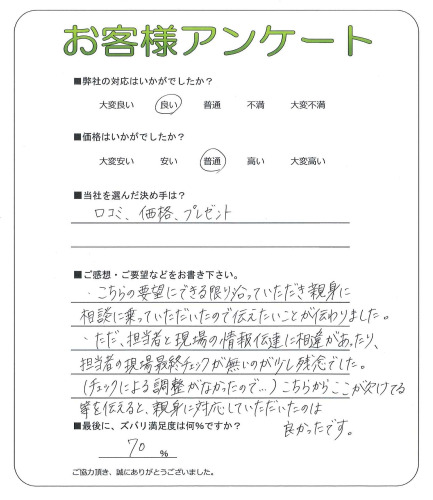 お客様アンケート
■弊社の対応はいかがでしたか？
大変良い 良い 普通 不満 大変不満
■価格はいかがでしたか？
大変安い 安い 普通 高い 大変高い
■当社を選んだ決め手は？
口コミ、価格、プレゼント
■ご感想・ご要望などをお書き下さい。
・こちらの要望にできる限り沿っていただき親身に
相談に乗っていただいたので伝えたいことが伝わりました。
・ただ、担当者と現場の情報伝達に相違があったり、
担当者の現場最終チェックが無いのが少し残念でした。
(チェックによる調整がなかったので…)こちらからここが欠けてる
等を伝えると、親身に対応していただいたのは
良かったです。
■最後に、ズバリ満足度は何%ですか？
70 %
ご協力頂き、誠にありがとうございました。